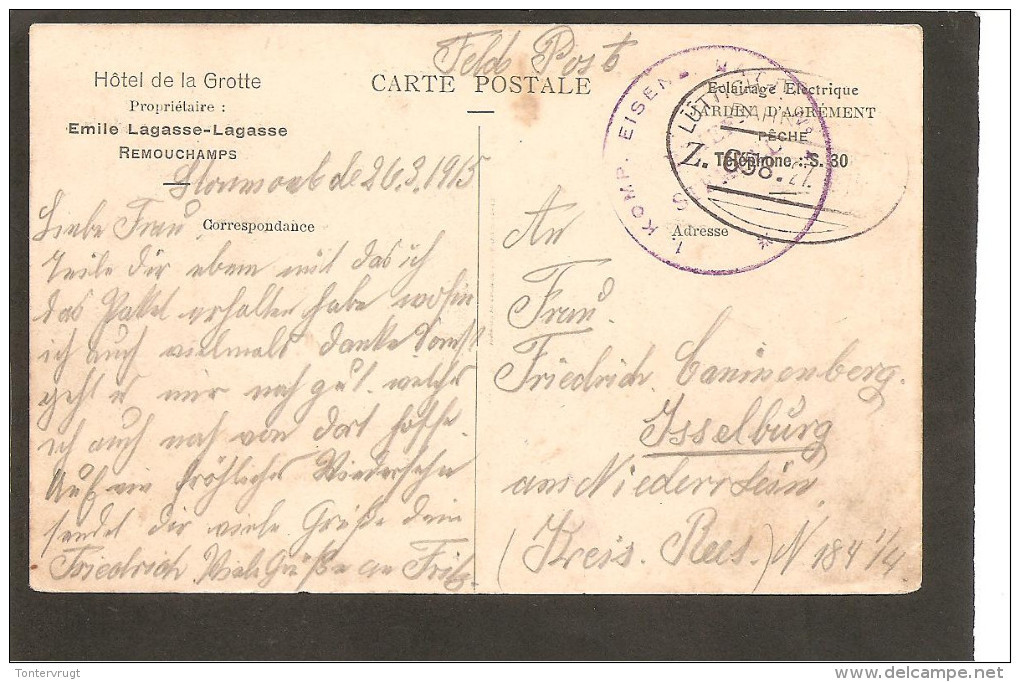 Feld Post
Hôtel de la Grotte
Propriétaire :
Emile Lagasse-Lagasse
REMOUCHAMPS
CARTE POSTALE
Eclairage Electrique
JARDIN D'AGRÉMENT
PÊCHE
Téléphone : S. 30
1. KOMP. EISENB.
LÜTTICH
Z. 698. 27.
de 26.3.1915
Correspondance
Adresse
Liebe Frau.
Teile dir eben mit das ich
das Paket erhalten habe wofür
ich auch vielmals danke. Sonst
geht es mir noch gut. welches
ich auch noch von dort hoffe.
Auf ein fröhliches Wiedersehn
sendet dir viele Grüße dein
Friedrich. Viele Grüße an Fritz.
An
Frau.
Friedrich. Camınenberg.
Isselburg
am Niederrhein.
(Kreis. Rees.) N 184 1/4
Tontervrugt
delcampe.net